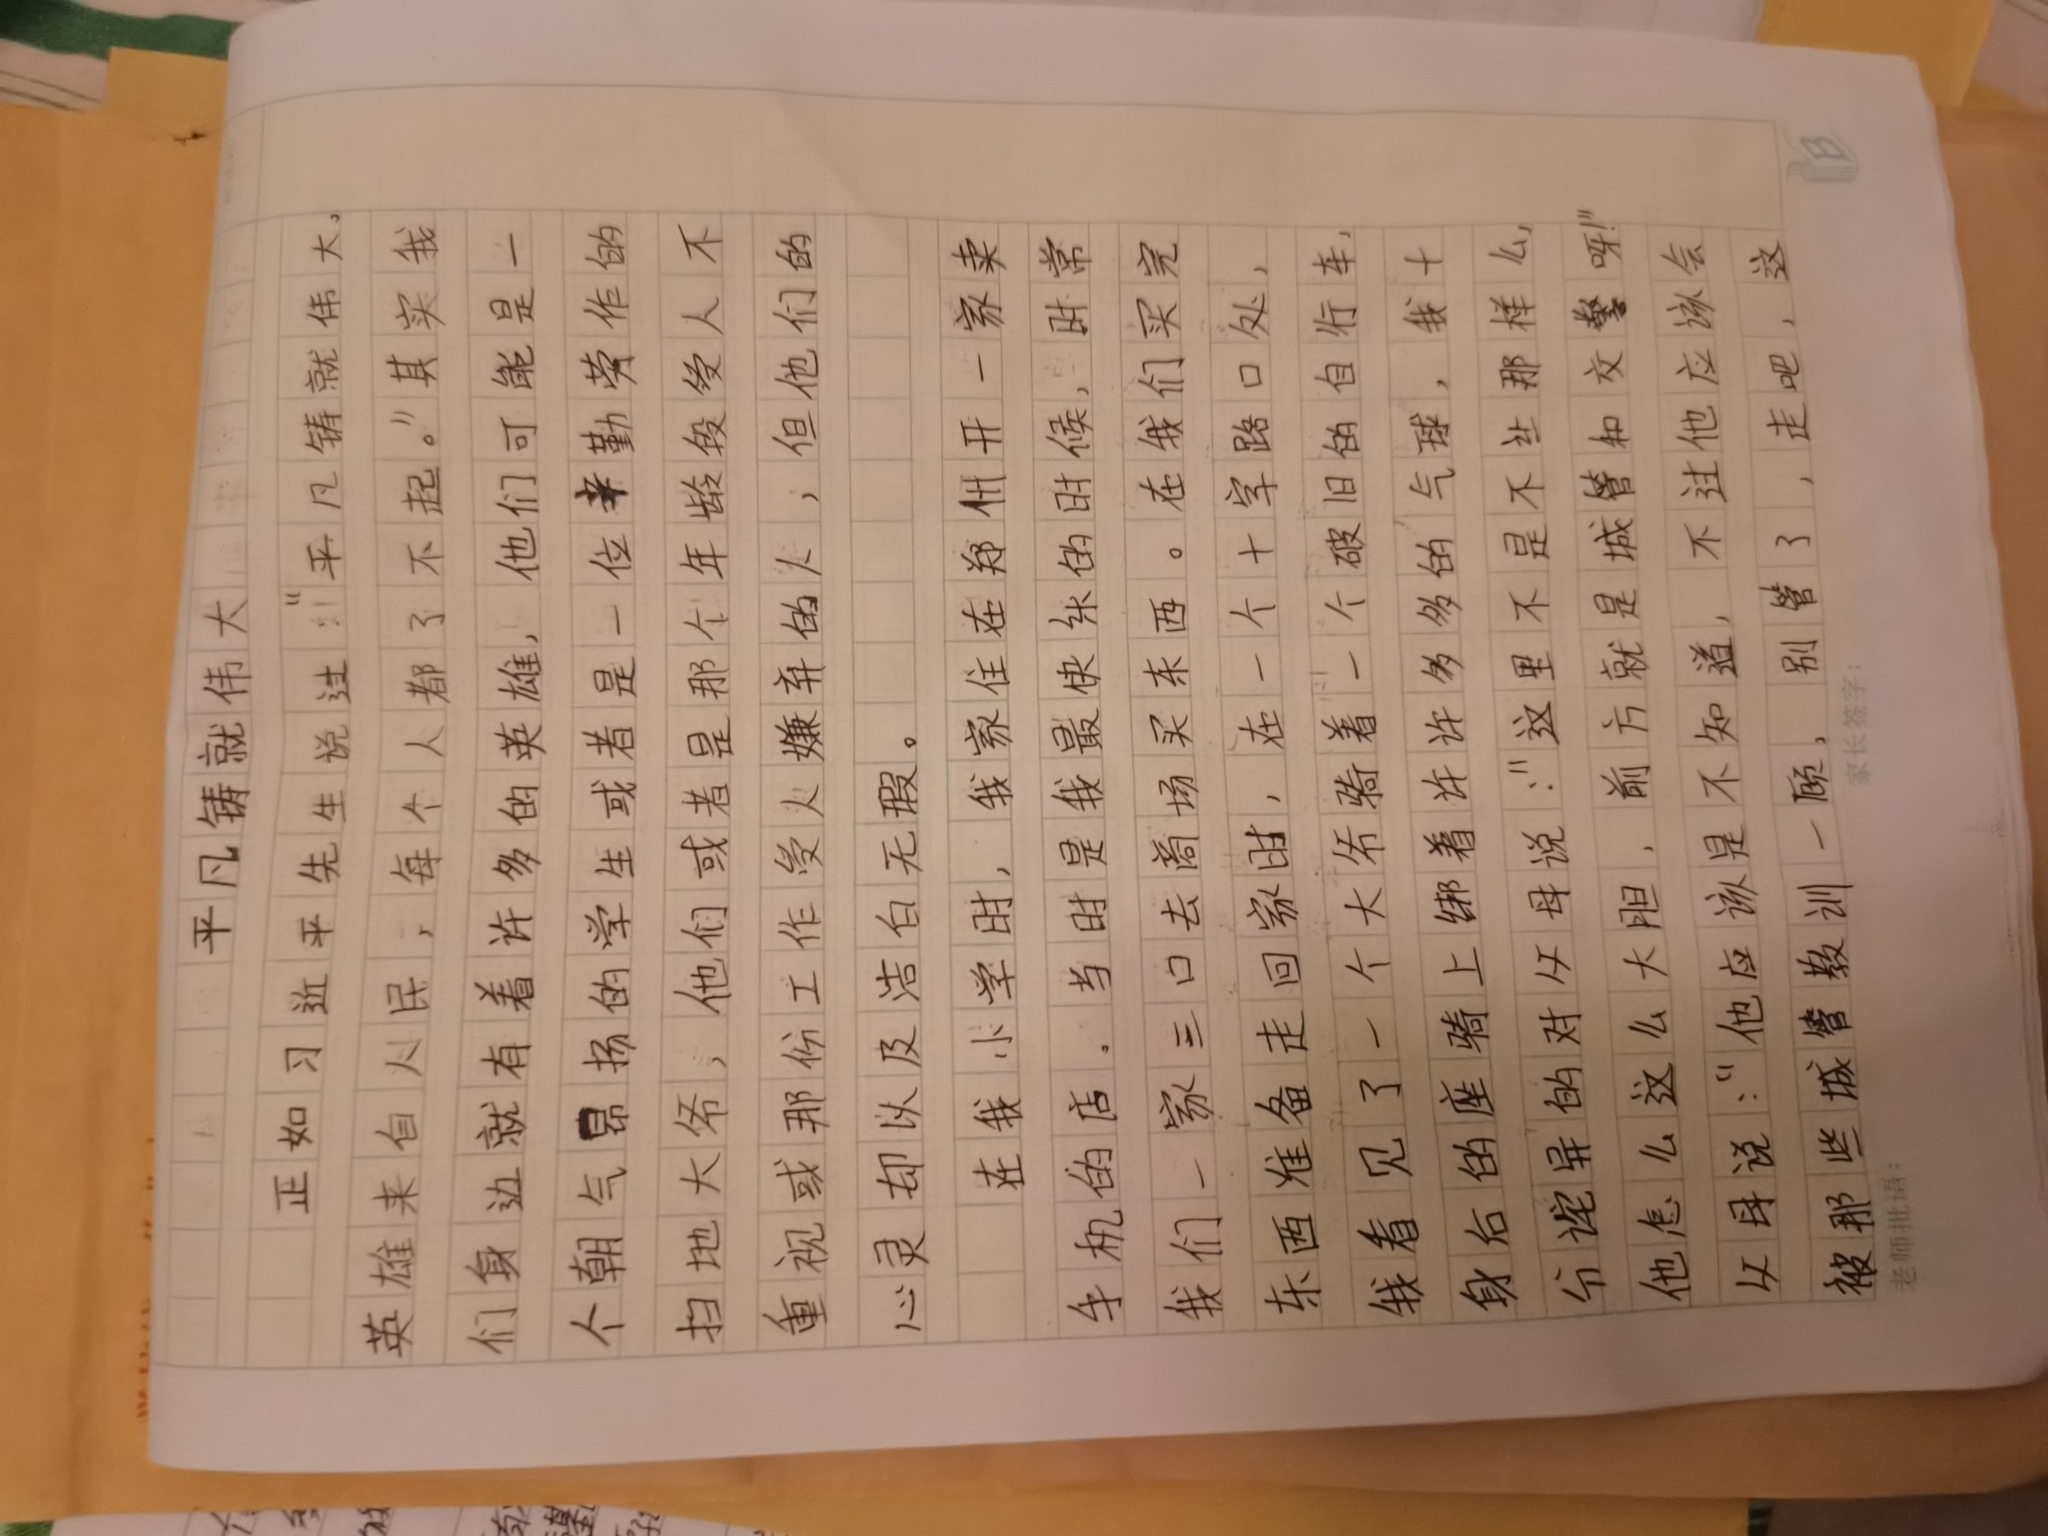 平凡铸就伟大
正如习近平先生说过:“平凡铸就伟大,
英雄来自人民,每个人都了不起。”其实我
们身边就有着许多的英雄,他们可能是一
个朝气昂扬的学生或者是一位辛勤劳作的
扫地大爷,他们或者是那个年龄段受人不
重视或那份工作受人嫌弃的人,但他们的
心灵却以及洁白无瑕。
在我小学时,我家住在郑州开一家卖
手机的店。当时是我最快乐的时候,时常
我们一家三口去商场买东西。在我们买完
东西准备走回家时,在一个十字路口处,
我看见了一个大爷骑着一个破旧的自行车,
身后的座骑上绑着许许多多的气球,我十
分诧异的对父母说:“这里不是不让那样么,
他怎么这么大胆,前方就是城管和交警呀!”
父母说:“他应该是不知道,不过他应该会
被那些城管教训一顾,别管了,走吧,这
老师批语:
家长签字: